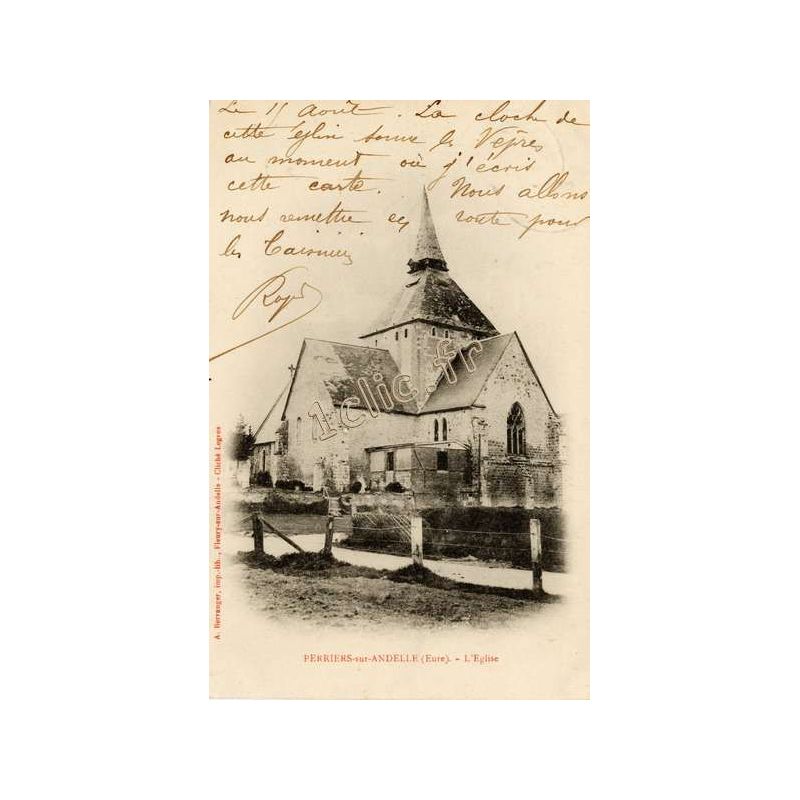 Le 15 Août. La cloche de
cette église sonne les Vêpres
au moment où j'écris
cette carte. Nous allons
nous remettre en route pour
les
1clic.fr
A. Herranger, imp.-lib., Fleury-sur-Andelle - Cliché Legros
PERRIERS-sur-ANDELLE (Eure). - L'Eglise